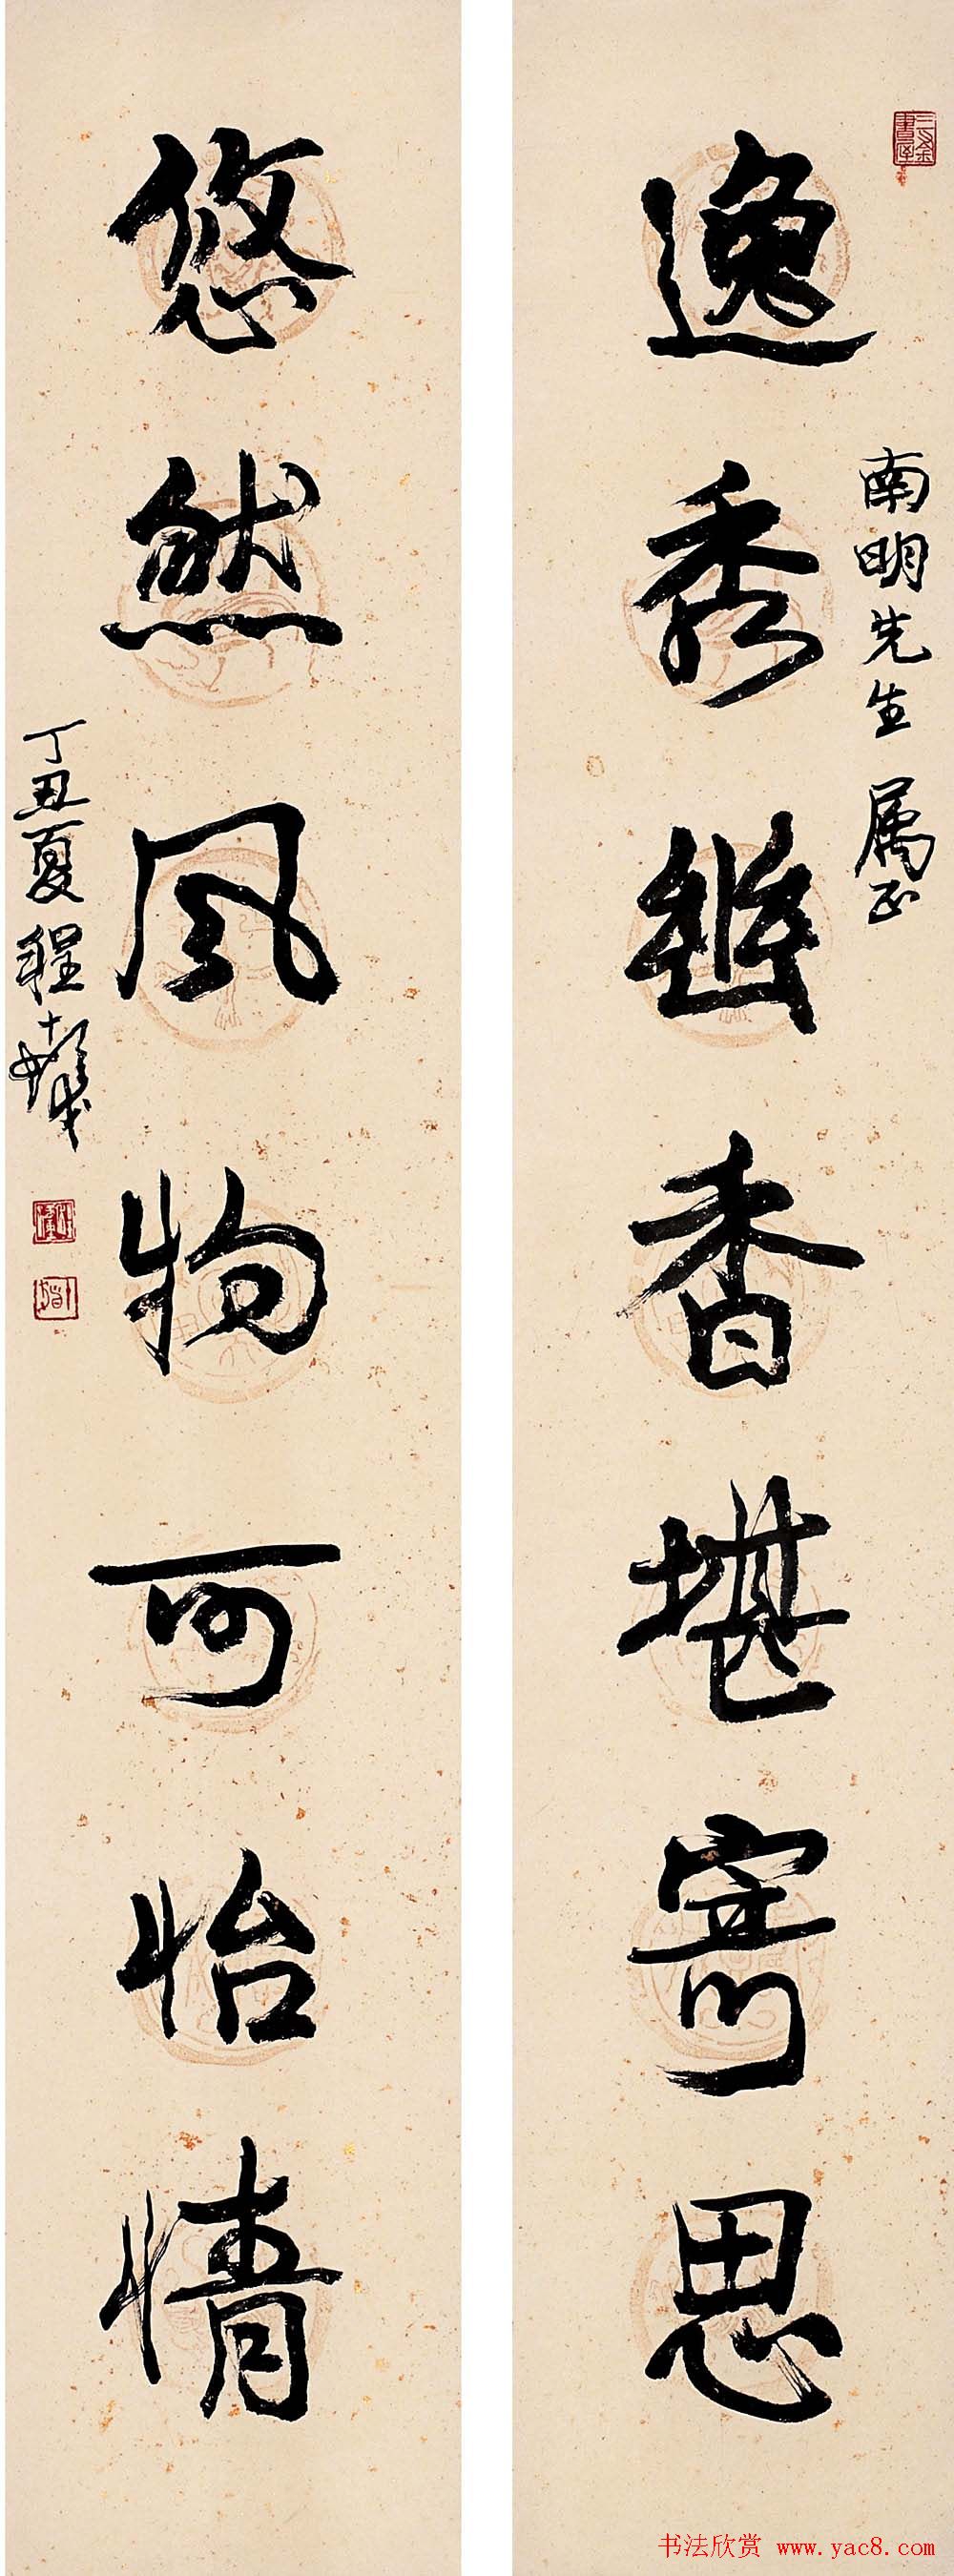 三釜書屋
南明先生 属正
逸秀幽香堪寄思
悠然風物可怡情
丁丑夏程十髮
书法欣赏 www.yac8.com